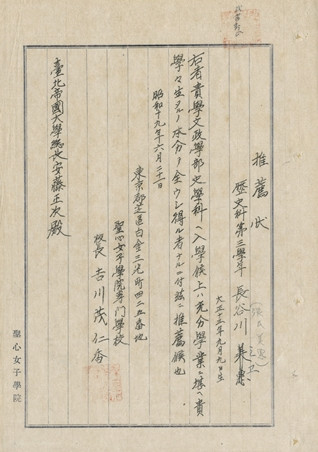 推薦状
歴史科第三學年 長谷川美惠
大正十三年九月九日生
右者貴學文政學部史學科ヘ入學候上ハ充分學業ニ堪ヘ貴
學々生タルノ本分ヲ全ウシ得ル者ナルニ付茲ニ推薦候也
昭和十九年六月二十一日
東京都芝區白金三光町四二五番地
聖心女子學院専門學校
校長 吉川茂仁香
臺北帝國大學總長安藤正次殿
聖心女子學院